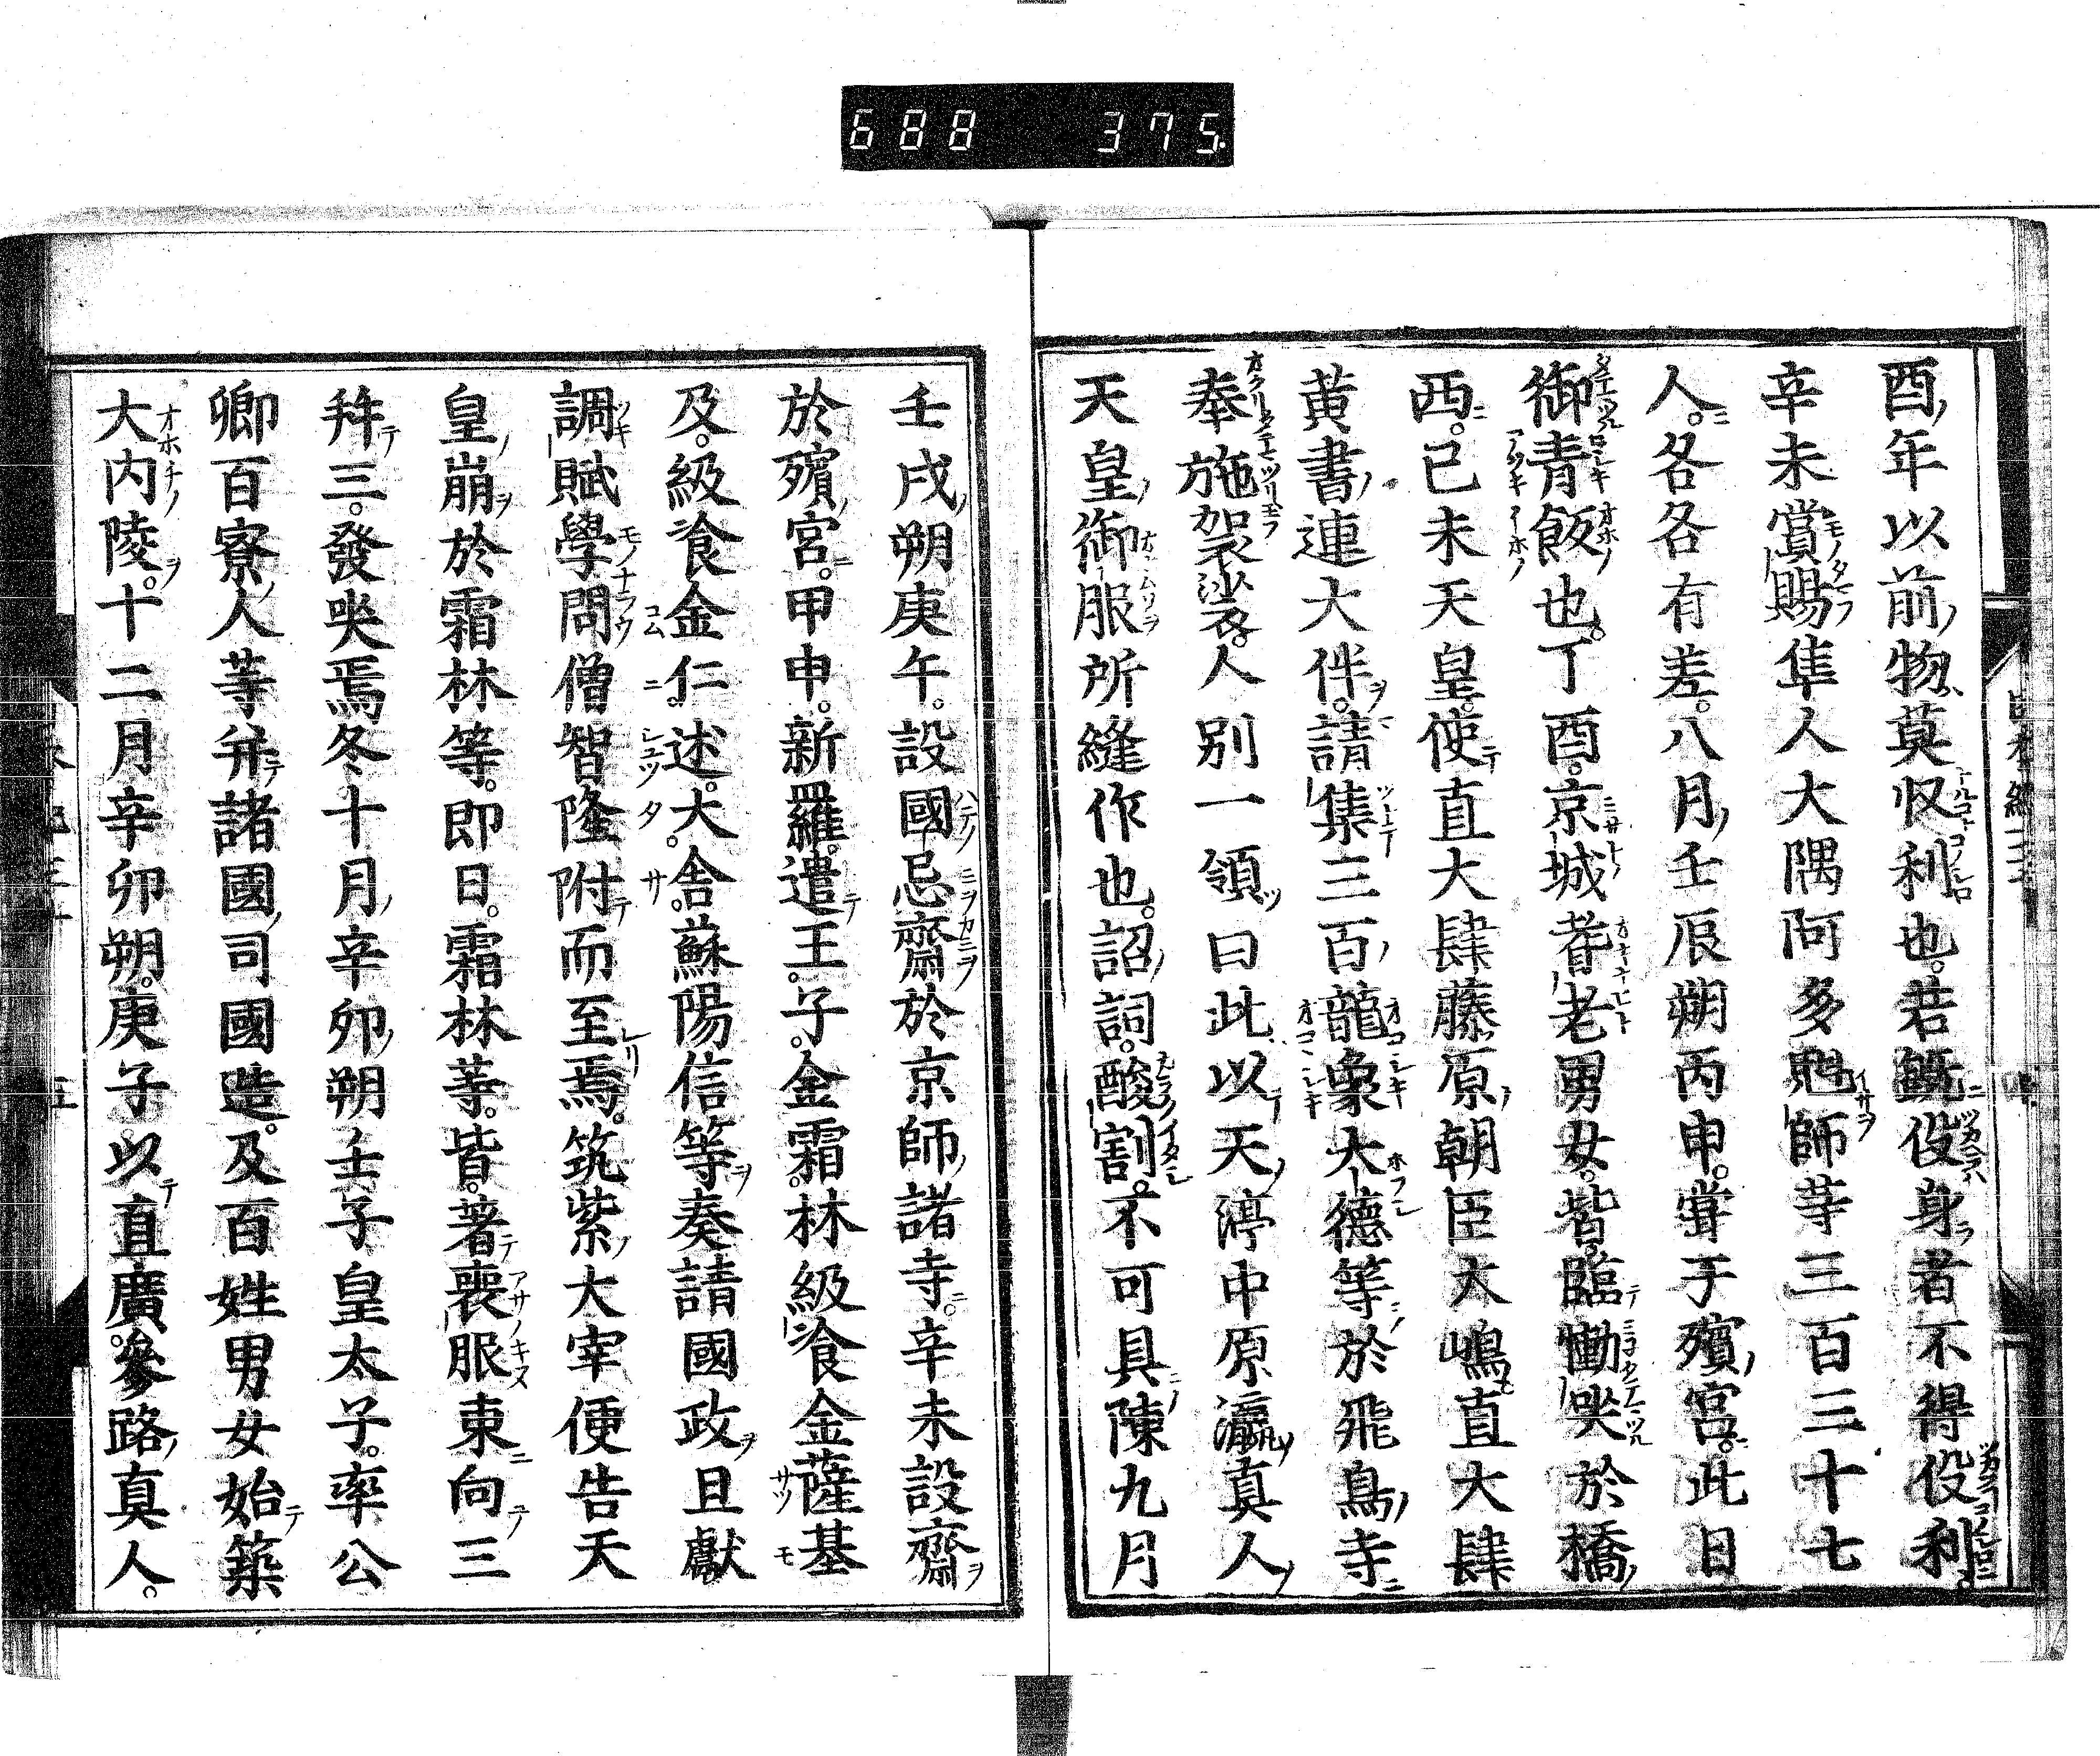 688 375
酉年以前物莫収利也若既役身者不得役利
辛未賞賜隼人大隅阿多魁師等三百三十七
人各各有差八月壬辰朔丙申嘗于殯宮此日
御青飯也丁酉京城耆老男女皆臨慟哭於橋
西己未天皇使直大肆藤原朝臣大嶋直大肆
黄書連大伴請集三百龍象大徳等於飛鳥寺
奉施袈裟人別一領曰此以天渟中原瀛真人
天皇御服所縫作也詔詞酸割不可具陳九月
壬戌朔庚午設國忌齋於京師諸寺辛未設齋
於殯宮甲申新羅遣王子金霜林級飡金薩基
及級飡金仁述大舎蘇陽信等奏請國政且獻
調賦學問僧智隆附而至焉筑紫大宰便告天
皇崩於霜林等即日霜林等皆著喪服東向三
拜三發哭焉冬十月辛卯朔壬子皇太子率公
卿百寮人等并諸國司國造及百姓男女始築
大内陵十二月辛卯朔庚子以直廣參路真人